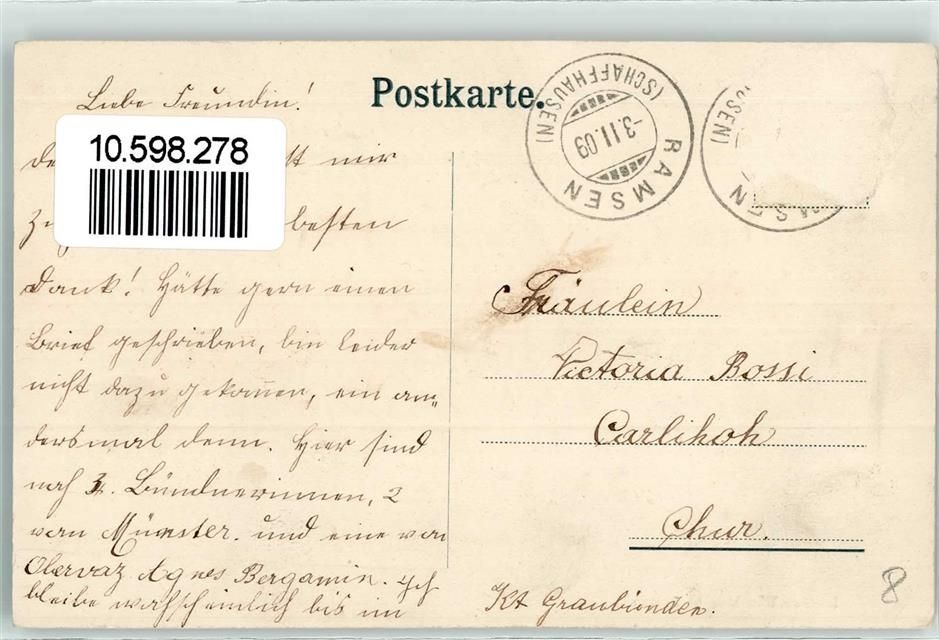 Postkarte.
Liebe Freundin!
10.598.278
mir
besten
Dank! Hätte gern einen
Brief geschrieben, bin leider
nicht dazu gekommen, ein an=
dersmal denn. Hier sind
noch 3. Bündnerinnen, 2
von Münster. und eine von
Obervaz Agnes Bergamin. Ich
bleibe wahscheinlich bis im
RAMSEN
(SCHAFFHAUSEN)
-3.11.09
Fräulein
Victoria Bossi
Chur.
Kt Graubünden.
8